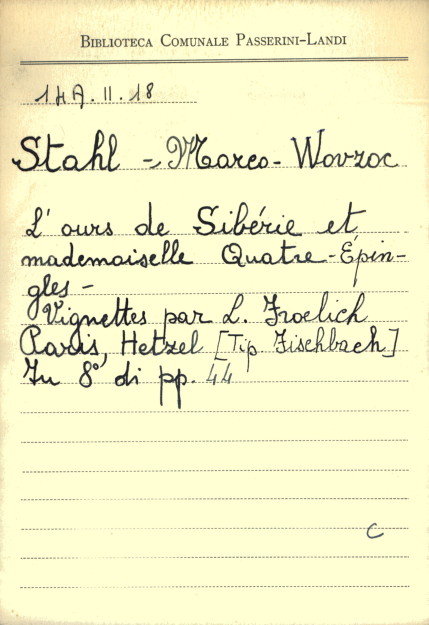 BIBLIOTECA COMUNALE PASSERINI-LANDI
147.II.18
Stahl - Marco - Wovzoc
L'ours de Sibérie et
mademaiselle Quatre-Épin-
gles -
Vignettes par L. Froelich
Paris, Hetzel [Tip. Fischbach]
In 8° di pp. 44
C